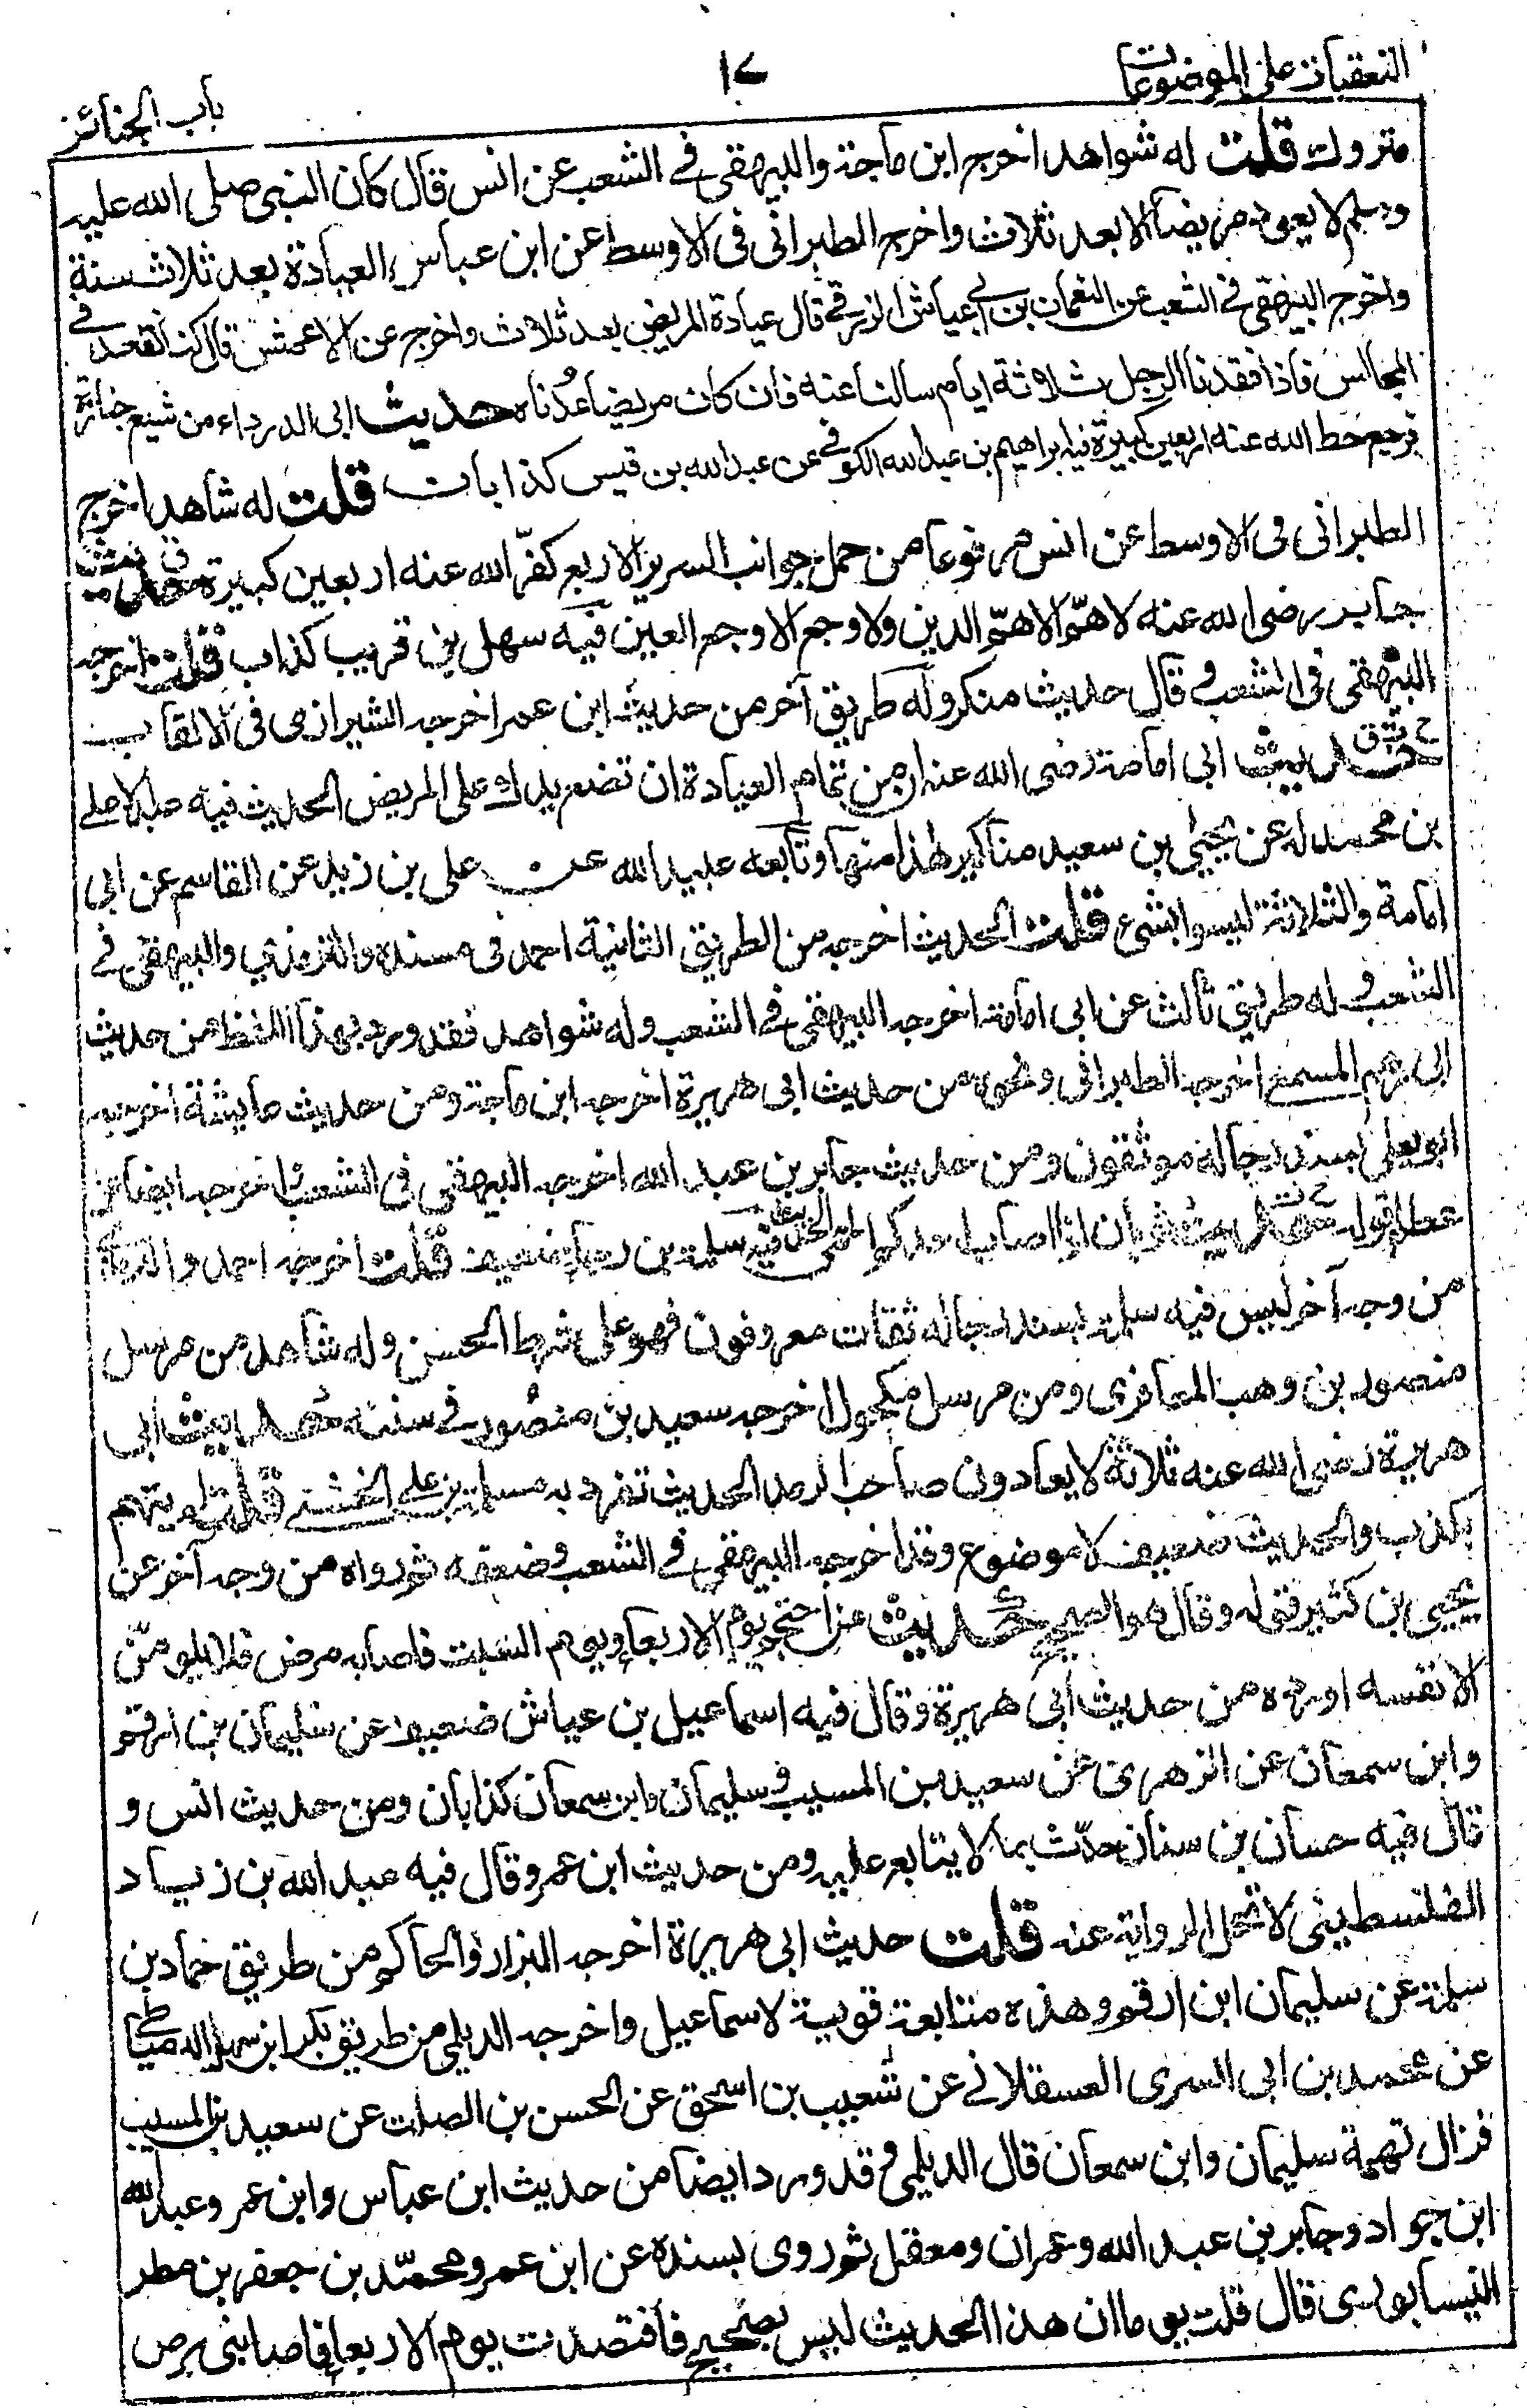 التعقبات على الموضوعات
١٧
باب الجنائز
متروك قلت له شواهد اخرج ابن ماجة والبيهقي في الشعب عن انس قال كان النبي صلى الله عليه
وسلم لا يعود مريضا الا بعد ثلاث واخرج الطبراني في الاوسط عن ابن عباس العيادة بعد ثلاث سنة
واخرج البيهقي في الشعب عن النعمان بن ابي عياش الزرقي قال عيادة المريض بعد ثلاث واخرج عن الاعمش قال كنا نقعد في
المجالس فاذا فقدنا الرجل ثلاثة ايام سالنا عنه فان كان مريضا عُدناه حديث ابي الدرداء من شيع جنازة
فرجع حط الله عنه اربعين كبيرة فيه ابراهيم بن عبد الله الكوفي عن عبد الله بن قيس كذابان قلت له شاهد اخرج
الطبراني في الاوسط عن انس مرفوعا من حمل جوانب السرير الاربع كفّر الله عنه اربعين كبيرة حديث
جابر رضى الله عنه لا همّ الا همّ الدين ولا وجع الا وجع العين فيه سهل بن قريب كذاب قلت اخرجه
البيهقي في الشعب و قال حديث منكر وله طريق آخر من حديث ابن عمر اخرجه الشيرازي في الالقاب
حديث ابي امامة رضى الله عنه ان من تمام العيادة ان تضع يدك على المريض الحديث فيه عبد الاعلى
بن محمد له عن يحيى بن سعيد مناكير هذا منها وتابعه عبيد الله عن علي بن زيد عن القاسم عن ابى
امامة والثلاثة ليسوا بشئ قلت الحديث اخرجه من الطريق الثانية احمد فى مسنده والترمذي والبيهقي في
الشعب و له طريق ثالث عن ابى امامة اخرجه البيهقي في الشعب وله شواهد فقد ورد بهذا اللفظ من حديث
ابى رهم المسمعي اخرجه الطبراني ونحوه من حديث ابى هريرة اخرجه ابن ماجة ومن حديث عايشة اخرجه
ابو يعلى بسند رجاله موثقون ومن حديث جابر بن عبد الله اخرجه البيهقي في الشعب واخرجه ايضا عن
عطاء قوله حديث ثوبان اذا اصاب احدكم الحمى الحديث فيه سلمة بن رجاء ضعيف قلت اخرجه احمد والترمذي
من وجه آخر ليس فيه سلمة بسند رجاله ثقات معروفون فهو على شرط الحسن وله شاهد من مرسل
منصور بن وهب المعافرى ومن مرسل مكحول اخرجه سعيد بن منصور في سننه حديث ابى
هريرة رضى الله عنه ثلاثة لا يعادون صاحب الرمد الحديث تفرد به مسلمة بن علي الخشني قلت لم يتهم
بكذب والحديث ضعيف لا موضوع وقد اخرجه البيهقي في الشعب وضعفه ثم رواه من وجه آخر عن
يحيى بن كثير قوله وقال هو الصحيح حديث من احتجم يوم الاربعاء ويوم السبت فاصابه مرض فلا يلومن
الا نفسه اورده من حديث ابى هريرة وقال فيه اسماعيل بن عياش ضعيف عن سليمان بن ارقم
وابن سمعان عن الزهرى عن سعيد بن المسيب و سليمان وابن سمعان كذابان ومن حديث انس و
قال فيه حسان بن سنان حدّث بما لا يتابع عليه ومن حديث ابن عمر وقال فيه عبد الله بن زياد
الفلسطينى لا تحل الرواية عنه قلت حديث ابى هريرة اخرجه البزار والحاكم من طريق حماد بن
سلمة عن سليمان ابن ارقم وهذه متابعة قوية لاسماعيل واخرجه الديلمي من طريق بكر ابن سهل الدمياطي
عن محمد بن ابى السرى العسقلاني عن شعيب بن اسحق عن الحسن بن الصلت عن سعيد بن المسيب
فزال تهمة سليمان وابن سمعان قال الديلمى و قد ورد ايضا من حديث ابن عباس وابن عمر وعبد الله
ابن جواد وجابر بن عبد الله وعمران ومعقل ثم روى بسنده عن ابن عمرو محمّد بن جعفر بن مطر
النيسابورى قال قلت يوما ان هذا الحديث ليس بصحيح فافتصدت يوم الاربعاء فاصابنى برص